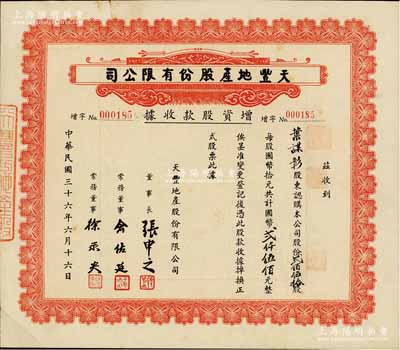 天豐地產股份有限公司
增字 No. 000185
增資股款收據
增字 No. 000185
茲收到
葉謀彰股東認購本公司股份貳佰伍拾股
每股國幣拾元共計國幣貳仟伍佰元整
俟基准變更登記後憑此股款收據掉換正
式股票此據
天豐地產股份有限公司
董事長 張申之
常務董事 俞佐廷
常務董事 徐永炎
中華民國三十六年六月十六日
上海陽明拍賣